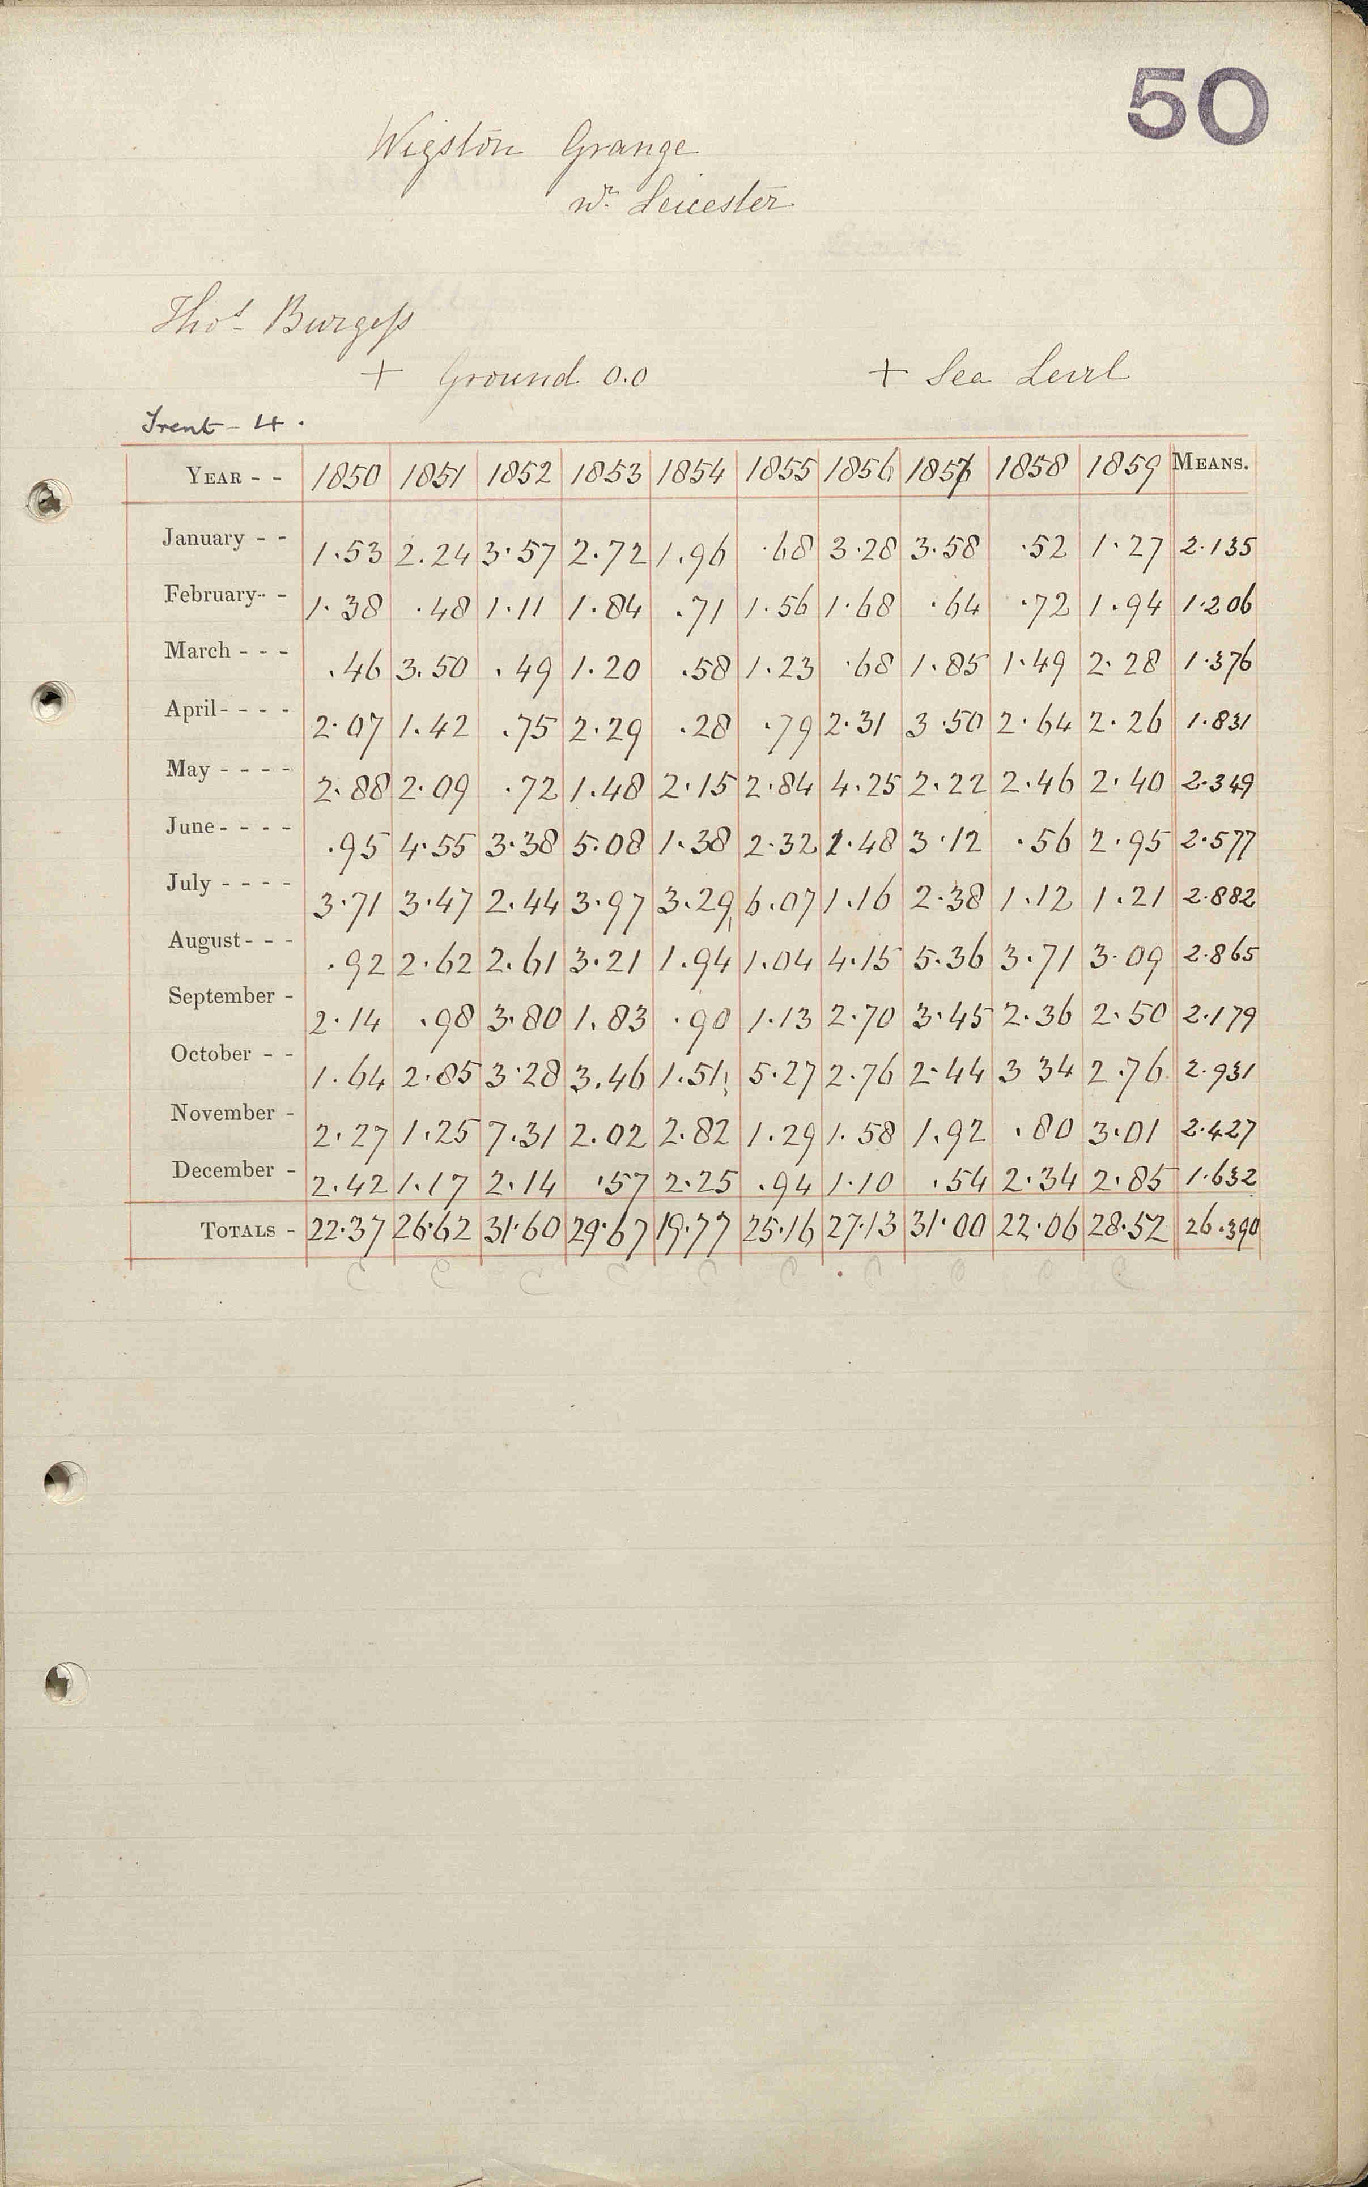 50
Wigston Grange
nr Leicester
Thos Burgess
+ Ground 0.0 + Sea Level
Trent - 4.
YEAR - - 1850 1851 1852 1853 1854 1855 1856 1857 1858 1859 MEANS.
January - - 1.53 2.24 3.57 2.72 1.96 .68 3.28 3.58 .52 1.27 2.135
February - - 1.38 .48 1.11 1.84 .71 1.56 1.68 .64 .72 1.94 1.206
March - - - .46 3.50 .49 1.20 .58 1.23 .68 1.85 1.49 2.28 1.376
April - - - - 2.07 1.42 .75 2.29 .28 .79 2.31 3.50 2.64 2.26 1.831
May - - - - 2.88 2.09 .72 1.48 2.15 2.84 4.25 2.22 2.46 2.40 2.349
June - - - - .95 4.55 3.38 5.08 1.38 2.32 1.48 3.12 .56 2.95 2.577
July - - - - 3.71 3.47 2.44 3.97 3.29 6.07 1.16 2.38 1.12 1.21 2.882
August - - - .92 2.62 2.61 3.21 1.94 1.04 4.15 5.36 3.71 3.09 2.865
September - 2.14 .98 3.80 1.83 .90 1.13 2.70 3.45 2.36 2.50 2.179
October - - 1.64 2.85 3.28 3.46 1.51 5.27 2.76 2.44 3 34 2.76 2.931
November - 2.27 1.25 7.31 2.02 2.82 1.29 1.58 1.92 .80 3.01 2.427
December - 2.42 1.17 2.14 .57 2.25 .94 1.10 .54 2.34 2.85 1.632
TOTALS - 22.37 26.62 31.60 29.67 19.77 25.16 27.13 31.00 22.06 28.52 26.390
C C C C C C C C C C